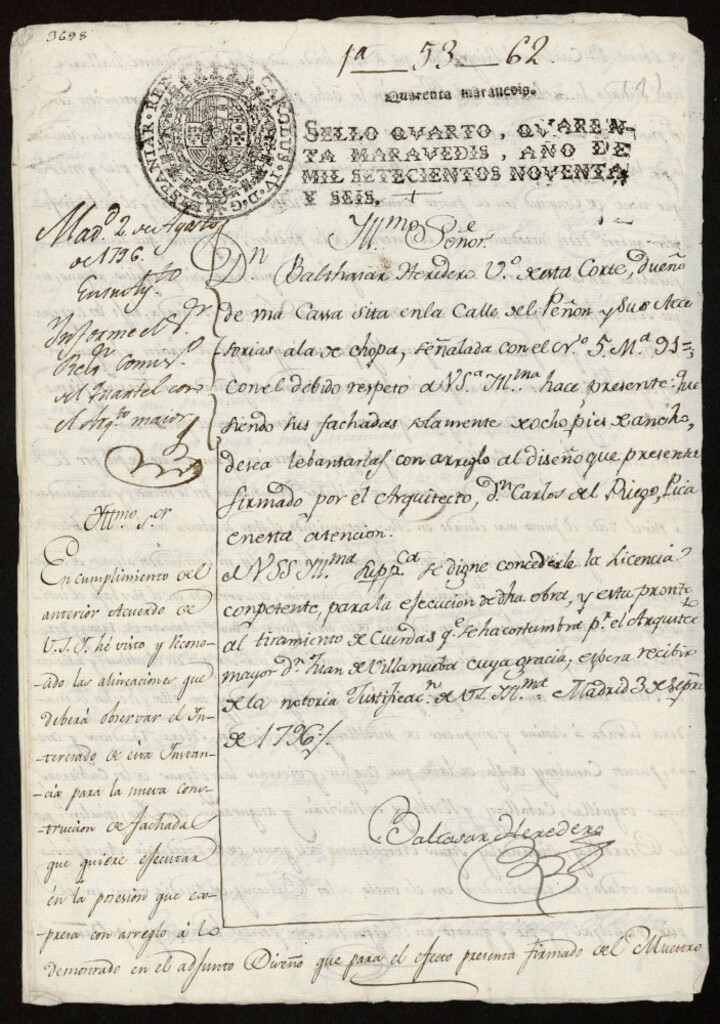 3698
1a 53 62
Quarenta maravedis.
CAROLUS · IV · D · G · HISPANIAR · REX
SELLO QVARTO, QVAREN-
TA MARAVEDIS, AÑO DE
MIL SETECIENTOS NOVENTA
Y SEIS.
Mad.d 2 de Agosto
de 1796.
Informe el S.r
Reg.r Comis.o
del Quartel con
el Arq.to maior
Yll.mo Señor
D.n Balthasar Heredero V.o de esta Corte, dueño
de una Cassa sita en la Calle del Peñon y sus Acce
sorias a la de chopa, señalada con el N.o 5. M.a 91=,
con el debido respeto a VS.a Yll.ma hace presente: que
siendo sus fachadas solamente de ocho pies de ancho,
desea lebantarlas con arreglo al diseño que presenta
firmado por el Arquitecto, d.n Carlos del Riego,
en esta atencion.
A VSS Yll.ma Supp.ca se digne concederle la licencia
conpetente, para la ejecucion de dha obra, y esta pronto
al tiramiento de Cuerdas q.e se hacostumbra p.r el Arquitecto
mayor d.n Juan de Villanueba cuya gracia, espera recibir
de la notoria Justificac.n de VS. Yll.ma Madrid 3 de Sepre
de 1796./.
Baltasar Heredero
Yltmo. S.or
En cumplimiento del
anterior Acuerdo de
V.S.I. hé visto y recono-
-cido las alineaciones que
deberá observar el In-
teresado de esta Instan-
-cia para la nueva cons-
-truccion de fachadas
que quiere executar
en la posesion que ex-
presa con arreglo á lo
demostrado en el adjunto Diseño que para el efecto presenta firmado del Maestro